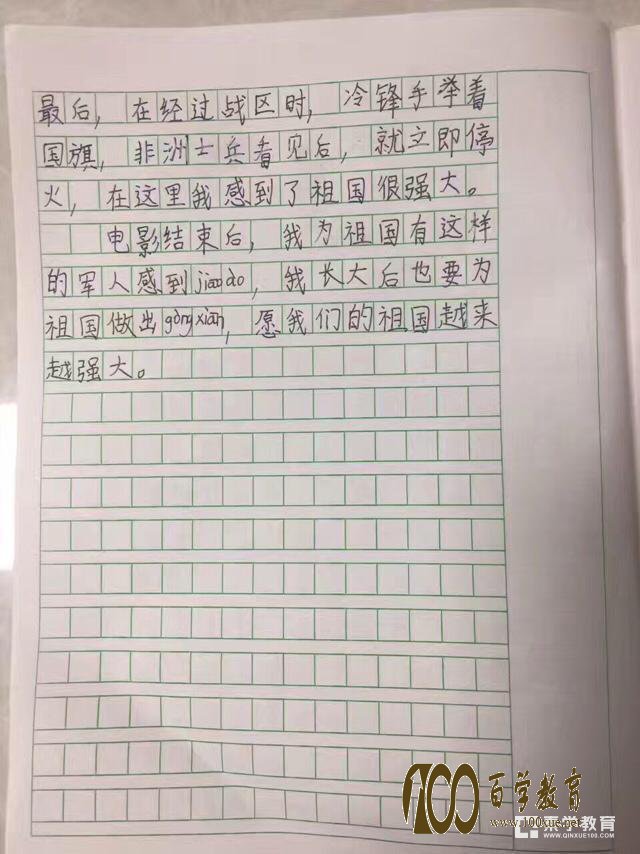 最后，在经过战区时，冷锋手举着
国旗，非洲士兵看见后，就立即停
火，在这里我感到了祖国很强大。
电影结束后，我为祖国有这样
的军人感到jiaoào，我长大后也要为
祖国做出gòngxiàn，愿我们的祖国越来
越强大。
100百学教育
www.100xue.net
秦学教育
WWW.QINXUE100.COM